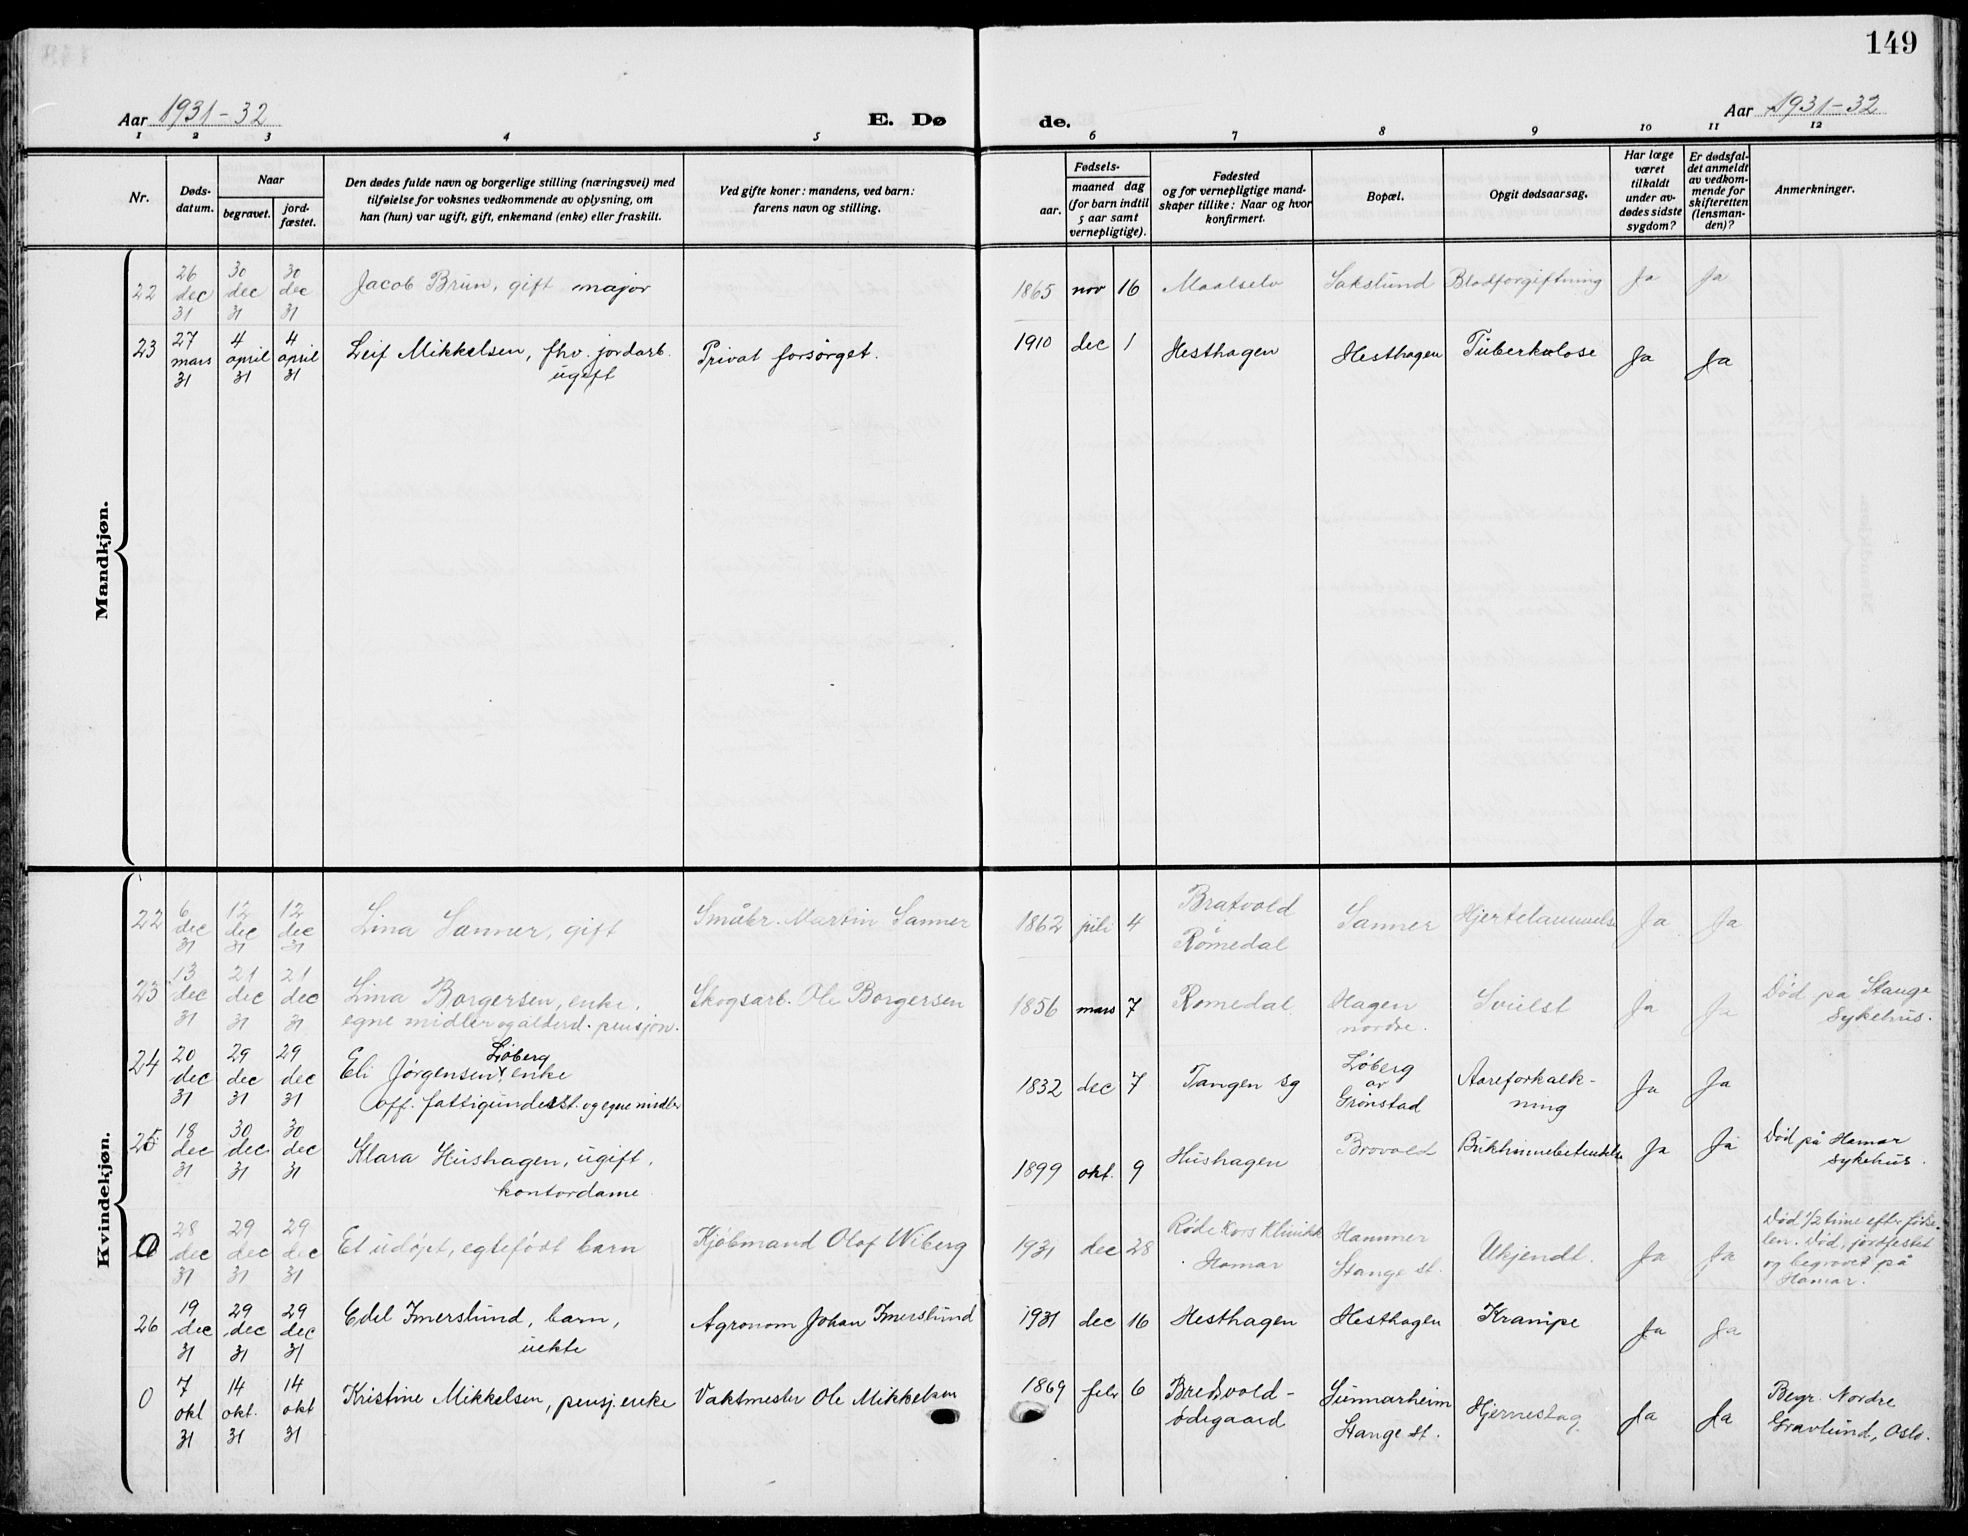 149
Aar 1931-32
E. Dø
de.
Aar 1931-32
1 2 3 4 5 6 7 8 9 10 11 12
Nr.
Døds-
datum.
Naar
begravet.
jord-
fæstet.
Den dødes fulde navn og borgerlige stilling (næringsvei) med
tilføielse for voksnes vedkommende av oplysning, om
han (hun) var ugift, gift, enkemand (enke) eller fraskilt.
Ved gifte koner: mandens, ved barn:
farens navn og stilling.
Fødsels-
aar.
maaned dag
(for barn indtil
5 aar samt
vernepligtige).
Fødested
og for vernepligtige mand-
skaper tillike: Naar og hvor
konfirmert.
Bopæl.
Opgit dødsaarsag.
Har læge
været
tilkaldt
under av-
dødes sidste
sygdom?
Er dødsfal-
det anmeldt
av vedkom-
mende for
skifteretten
(lensman-
den)?
Anmerkninger.
Mandkjøn.
22
26 dec 31
30 dec 31
30 dec 31
Jacob Brun, gift major
1865 nov 16
Maalselv
Sakslund
Blodforgiftning
Ja
Ja
23
27 mars 31
4 april 31
4 april 31
Leif Mikkelsen, fhv. jordarb.
ugift
Privat forsørget.
1910 dec 1
Hesthagen
Hesthagen
Tuberkulose
Ja
Ja
Kvindekjøn.
22
6 dec 31
12 dec 31
12 dec 31
Lina Sanner, gift
Småbr. Martin Sanner
1862 juli 4
Bratvold
i
Romedal
Sanner
Hjertelammelse
Ja
Ja
23
13 dec 31
21 dec 31
21 dec 31
Lina Borgersen, enke,
egne midler og alderd. pensjon.
Skogsarb. Ole Borgersen
1856 mars 7
Romedal
Hagen
nordre.
Svulst
Ja
Ja
Død pa Stange
Sykehus.
24
20 dec 31
29 dec 31
29 dec 31
Løberg
Eli Jørgensen, enke
off. fattigunderst. og egne midler
1832 dec 7
Tangen sg
Løberg
av
Grønstad
Aareforkalk-
ning
Ja
Ja
25
18 dec 31
30 dec 31
30 dec 31
Klara Hushagen, ugift,
kontordame.
1899 okt. 9
Hushagen
Brovold
Bukhinnebetendelse
Ja
Ja
Død på Hamar
sykehus.
0
28 dec 31
29 dec 31
29 dec 31
Et udøpt, egtefødt barn
Kjøbmand Olaf Wiberg
1931 dec 28
Røde Kors Klinikk
Hamar
Hammer
Stange st.
Ukjendt.
Ja
Ja
Død 1/2 time efter fødse-
len. Død, jordfestet
og begravet på
Hamar.
26
19 dec 31
29 dec 31
29 dec 31
Edel Imerslund, barn,
uekte
Agronom Johan Imerslund
1931 dec 16
Hesthagen
Hesthagen
Krampe
Ja
Ja
0
7 okt 31
14 okt. 31
14 okt 31
Kristine Mikkelsen, pensj. enke
Vaktmester Ole Mikkelsen
1869 febr 6
Bredvold-
ødegaard
Sunnarheim
Stange st.
Hjerneslag
Ja
Ja
Begr. Nordre
Gravlund, Oslo.